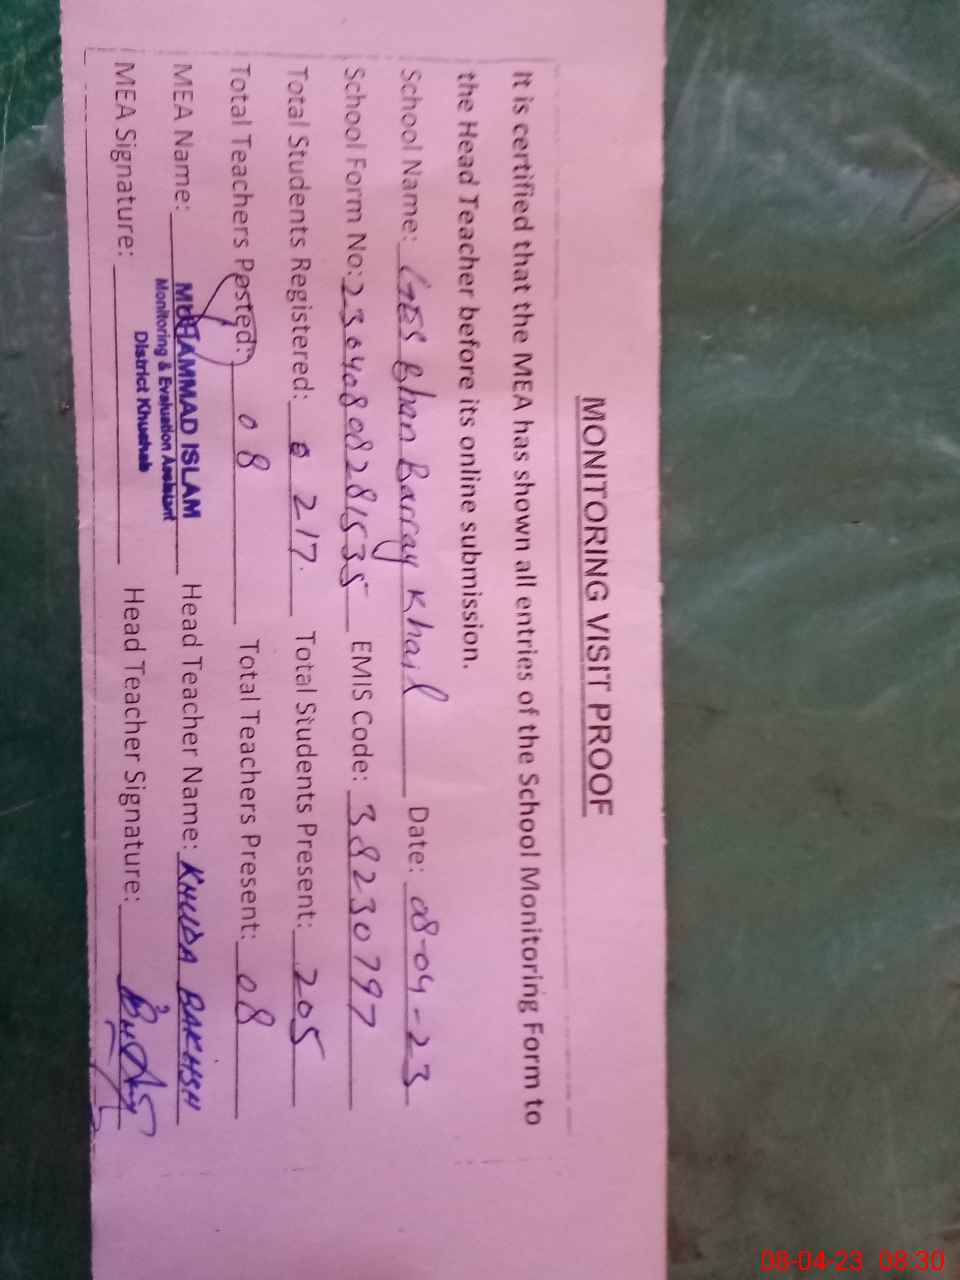 MONITORING VISIT PROOF
It is certified that the MEA has shown all entries of the School Monitoring Form to
the Head Teacher before its online submission.
School Name: GES Bhan Barray Khail Date: 08-04-23
School Form No: 23040808281535 EMIS Code: 38230797
Total Students Registered: 0 217 Total Students Present: 205
Total Teachers Posted: 08 Total Teachers Present: 08
MEA Name: MUHAMMAD ISLAM Head Teacher Name: KHUDA BAKHSH
Monitoring & Evaluation Assistant
District Khushab
MEA Signature: Head Teacher Signature:
08-04-23 08:30